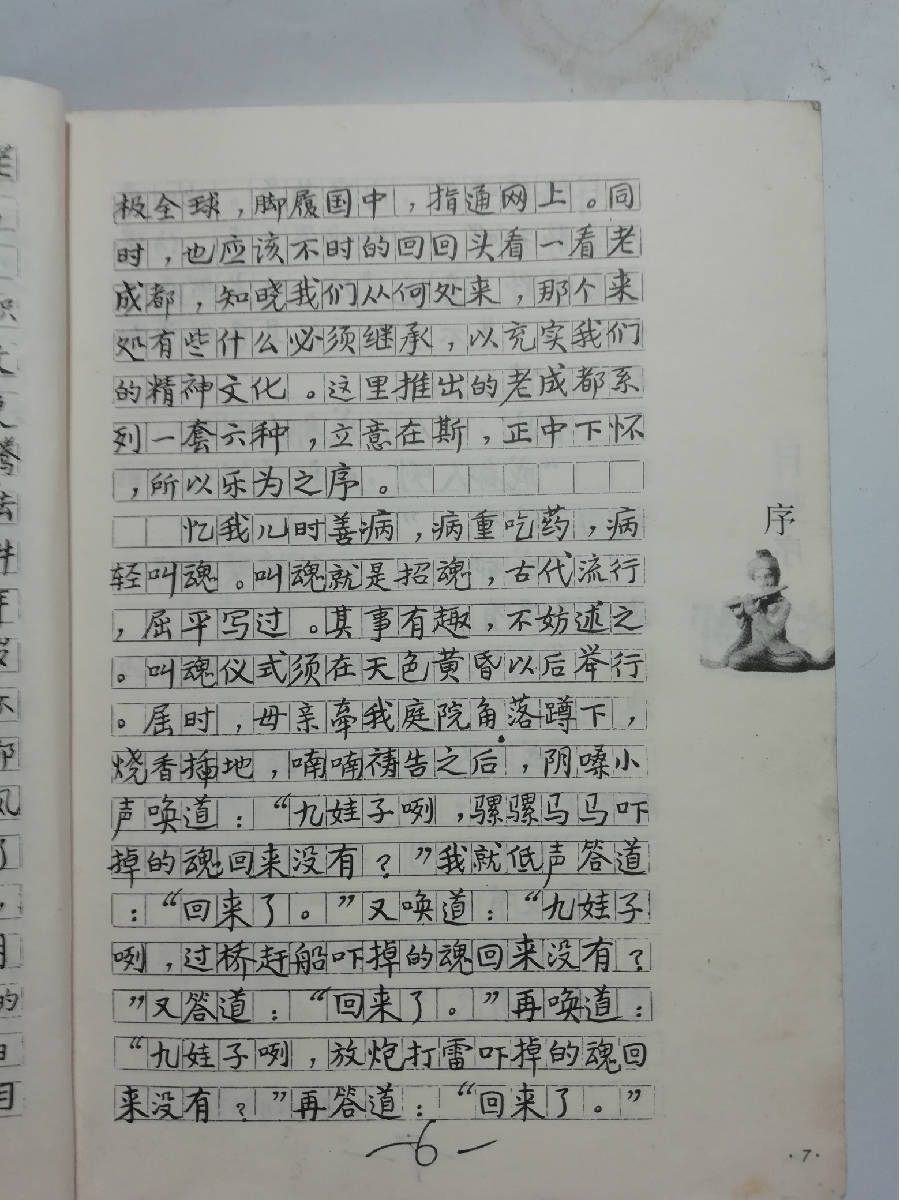 极全球，脚履国中，指通网上。同
时，也应该不时的回回头看一看老
成都，知晓我们从何处来，那个来
处有些什么必须继承，以充实我们
的精神文化。这里推出的老成都系
列一套六种，立意在斯，正中下怀
，所以乐为之序。
忆我儿时善病，病重吃药，病
轻叫魂。叫魂就是招魂，古代流行
，屈平写过。其事有趣，不妨述之
。叫魂仪式须在天色黄昏以后举行
。届时，母亲牵我庭院角落蹲下，
烧香插地，喃喃祷告之后，阴嗓小
声唤道：“九娃子咧，骡骡马马吓
掉的魂回来没有？”我就低声答道
：“回来了。”又唤道：“九娃子
咧，过桥赶船吓掉的魂回来没有？
”又答道：“回来了。”再唤道：
“九娃子咧，放炮打雷吓掉的魂回
来没有？”再答道：“回来了。”
—6—
序
·7·